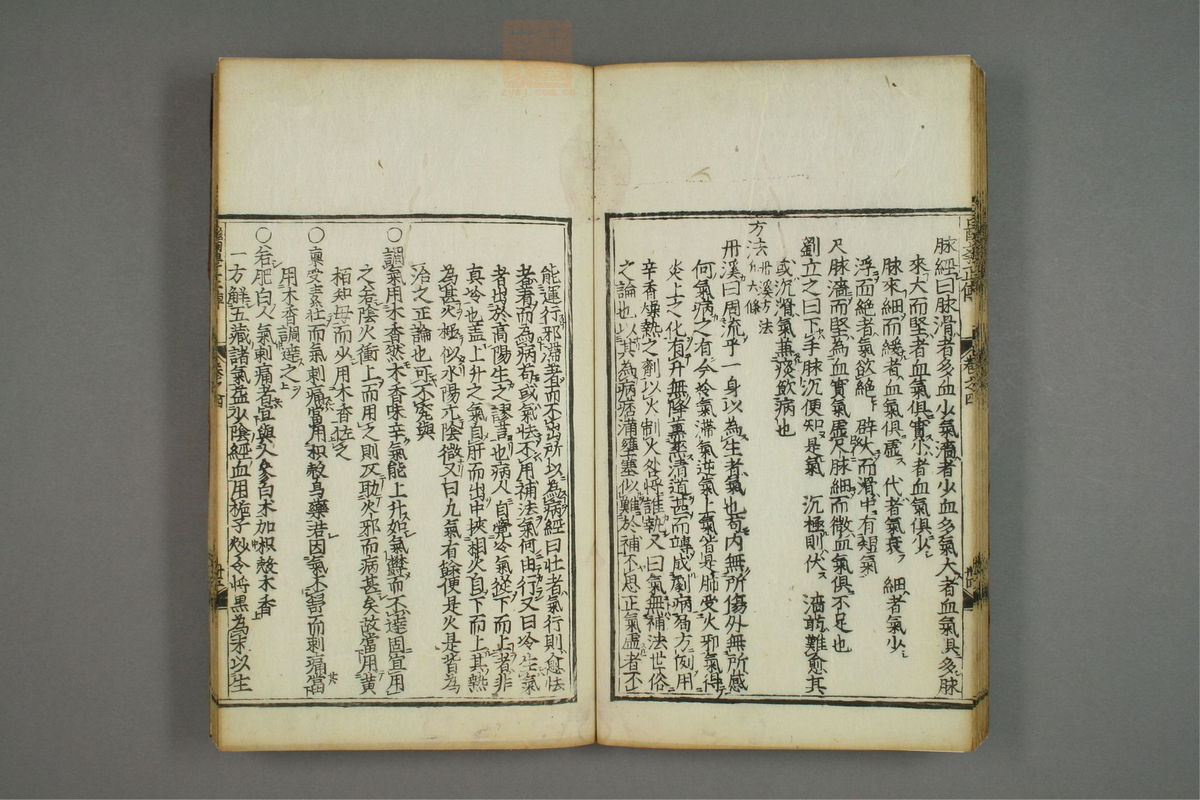 脉經曰脉滑者多血少氣濇者少血多氣大者血氣俱多脉
來大而堅者血氣俱實小者血氣俱少
脉來細而緩者血氣俱虛 代者氣衰 細者氣少
浮而絶者氣欲絶 辟大而滑中有短氣
尺脉濇而堅為血實氣虛尺脉細而微血氣俱不足也
劉立之曰下手脉沉便知是氣 沉極則伏 濇弱難愈其
或沉滑氣兼痰飲病也
方法 丹溪方法
凡六條
丹溪曰周流乎一身以為生者氣也苟内無所傷外無所感
何氣病之有今冷氣滯氣逆氣上氣皆是肺受火邪氣得
炎上之化有升無降熏蒸清道甚而轉成劇病局方例用
辛香燥熱之劑以火制火外將誰執又曰氣無補法世俗
之論也以其為病痞滿壅塞似難於補不思正氣虛者不
能運行邪滯著而不出所以為病經曰壮者氣行則愈怯
者著而為病有或氣怯不用補法氣何由行又曰冷生氣
者出於高陽生之謬言也病人自覺冷氣從下而上者非
真冷也盖上升之氣自肝而出中挾相火自下而上其熱
為甚火極似水陽亢陰微又曰凡氣有餘便是火是皆為
治之正論也可不究與
○調氣用木香然木香味辛氣能上升如氣鬱而不達固宜用
之若陰火衝上而用之則反助火邪而病甚矣故當用黄
栢知母而少用木香佐之
○禀受素壮而氣刺痛當用枳殼烏藥若因氣不舒而刺痛當
用木香調達之
○若肥白人氣刺痛者宜與人參白朮加枳殼木香
一方解五藏諸氣益少陰經血用梔子炒令將黒為末以生
卷之四